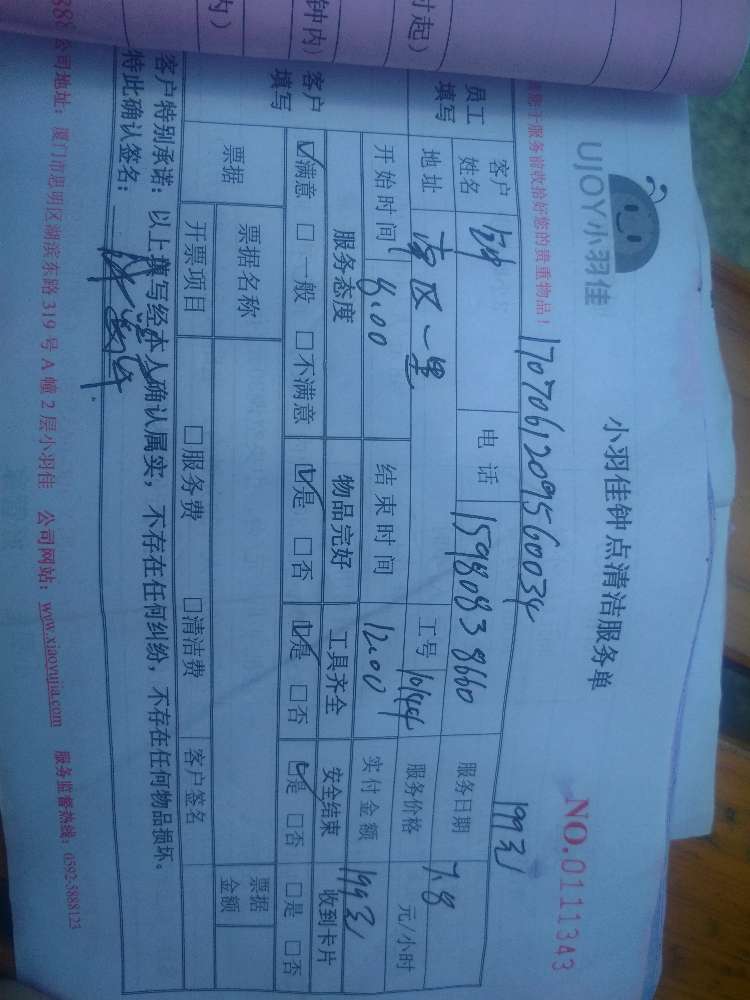 时起)
钟内)
内)
UJOY小羽佳
小羽佳钟点清洁服务单
NO.0111343
服务前收拾好您的贵重物品!
1707061209560034
199元
员工填写
客户姓名
电话
15980838660
服务日期
7.8
地址
南区一里
工号
10144
服务价格
元/小时
开始时间
8.00
结束时间
12.00
实付金额
199元
客户填写
服务态度
物品完好
工具齐全
安全结束
收到卡片
☑满意 □一般 □不满意
☑是 □否
☑是 □否
☑是 □否
□是 □否
票据
票据名称
票据金额
开票项目
□服务费
□清洁费
客户签名
客户特别承诺:以上填写经本人确认属实,不存在任何纠纷,不存在任何物品损坏。
特此确认签名:
公司地址:厦门市思明区湖滨东路319号A幢2层小羽佳 公司网站:www.xiaoyujia.com 服务监督热线:0592-5888123